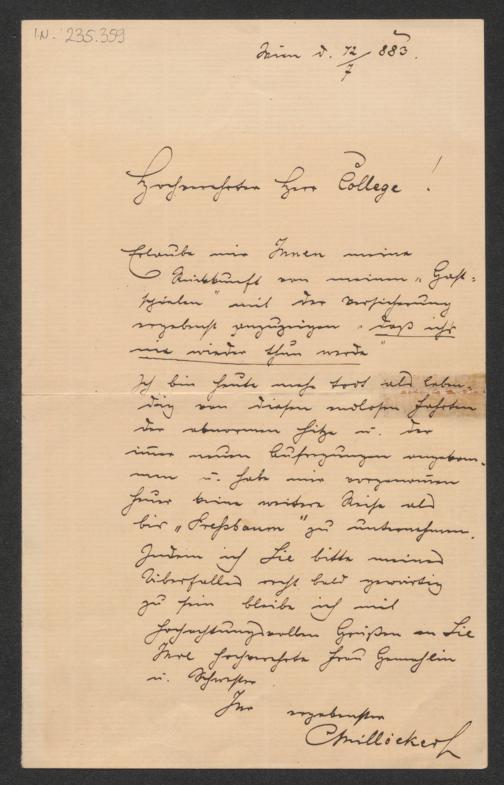 I.N. 235.359
Wien d. 12/7 883.
Hochverehrter Herr College!
Erlaube mir Ihnen meine
Rückkunft von meinen „Gast-
spielen" mit der Versicherung
ergebenst anzuzeigen „daß ich's
nie wieder thun werde"
Ich bin heute mehr todt als leben-
dig von diesen endlosen Fahrten
der abnormen Hitze u. der
immer neuen Aufregungen angekom-
men u. habe mir vorgenommen
heuer keine weitere Reise als
bis „Pressbaum" zu unternehmen.
Indem ich Sie bitte meines
Überfalles recht bald gewärtig
zu sein bleibe ich mit
hochachtungsvollen Grüßen an Sie
Ihre hochverehrte Frau Gemahlin
u. Schwester
Ihr ergebenster
CMillöcker